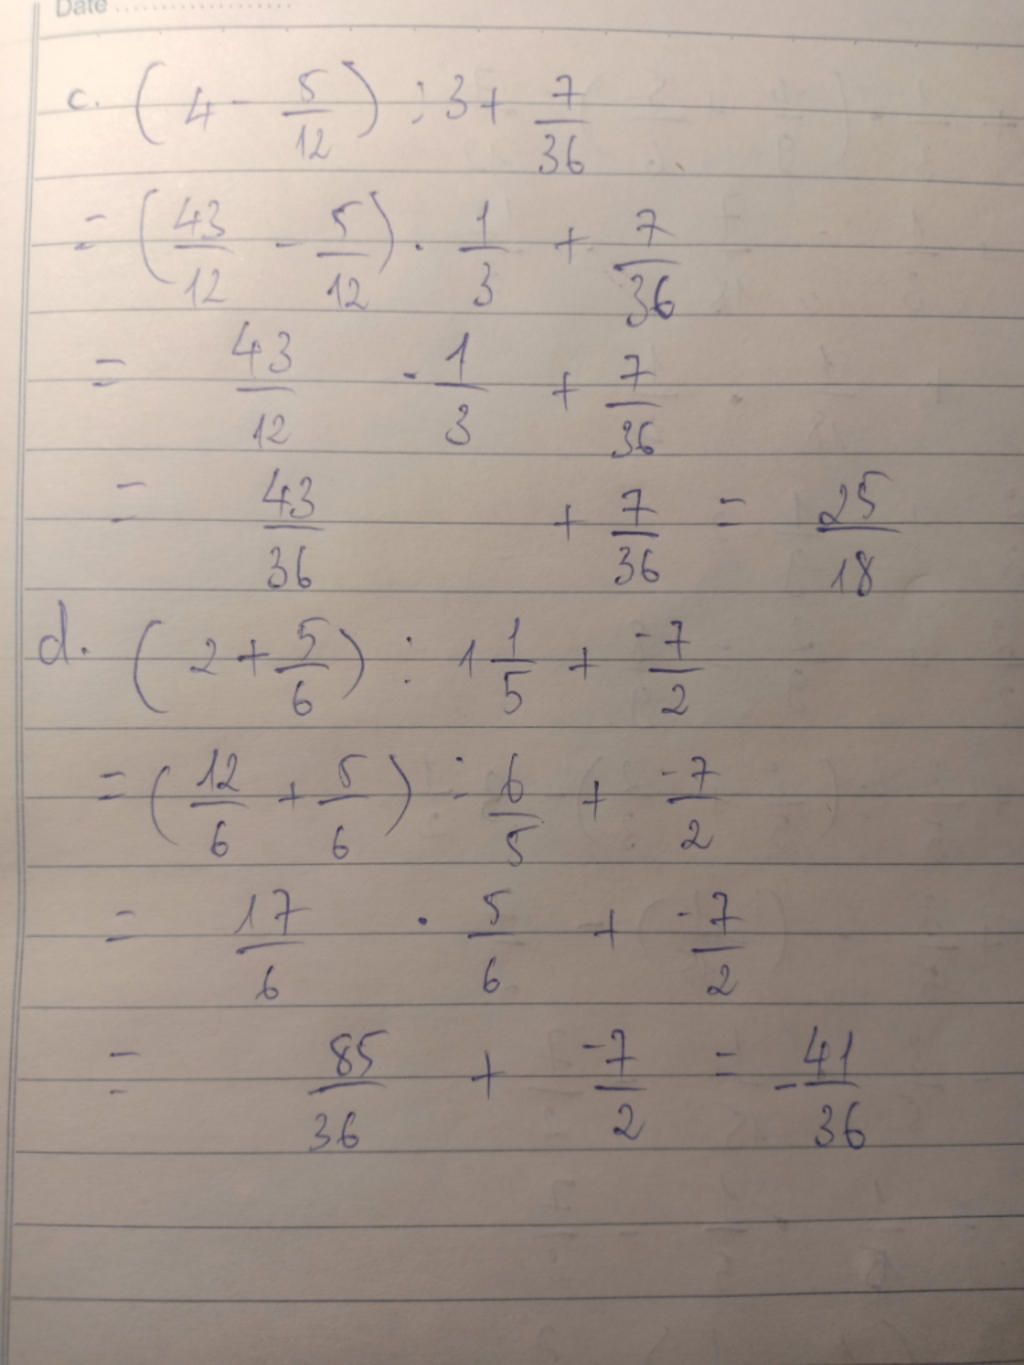 Date ....................
c. (4 - 5/12) : 3 + 7/36
= (43/12 - 5/12) · 1/3 + 7/36
= 43/12 · 1/3 + 7/36
= 43/36 + 7/36 = 25/18
d. (2 + 5/6) : 1 1/5 + -7/2
= (12/6 + 5/6) : 6/5 + -7/2
= 17/6 · 5/6 + -7/2
= 85/36 + -7/2 = -41/36